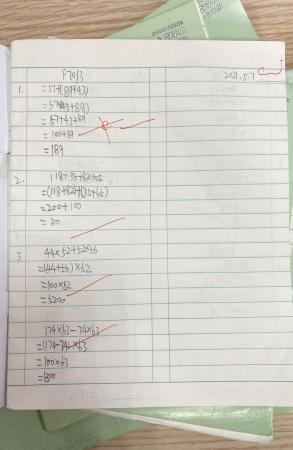 P70/3
2021.5.7
1.
=57+(89+43)
=57+(43+89)
=57+43+89
=100+89
=189
2.
118+35+82+65
=(118+82)+(35+65)
=200+100
=300
3
44×52+52×56
=(44+56)×52
=100×52
=5200
174×63-74×63
=(174-74)×63
=100×63
=6300